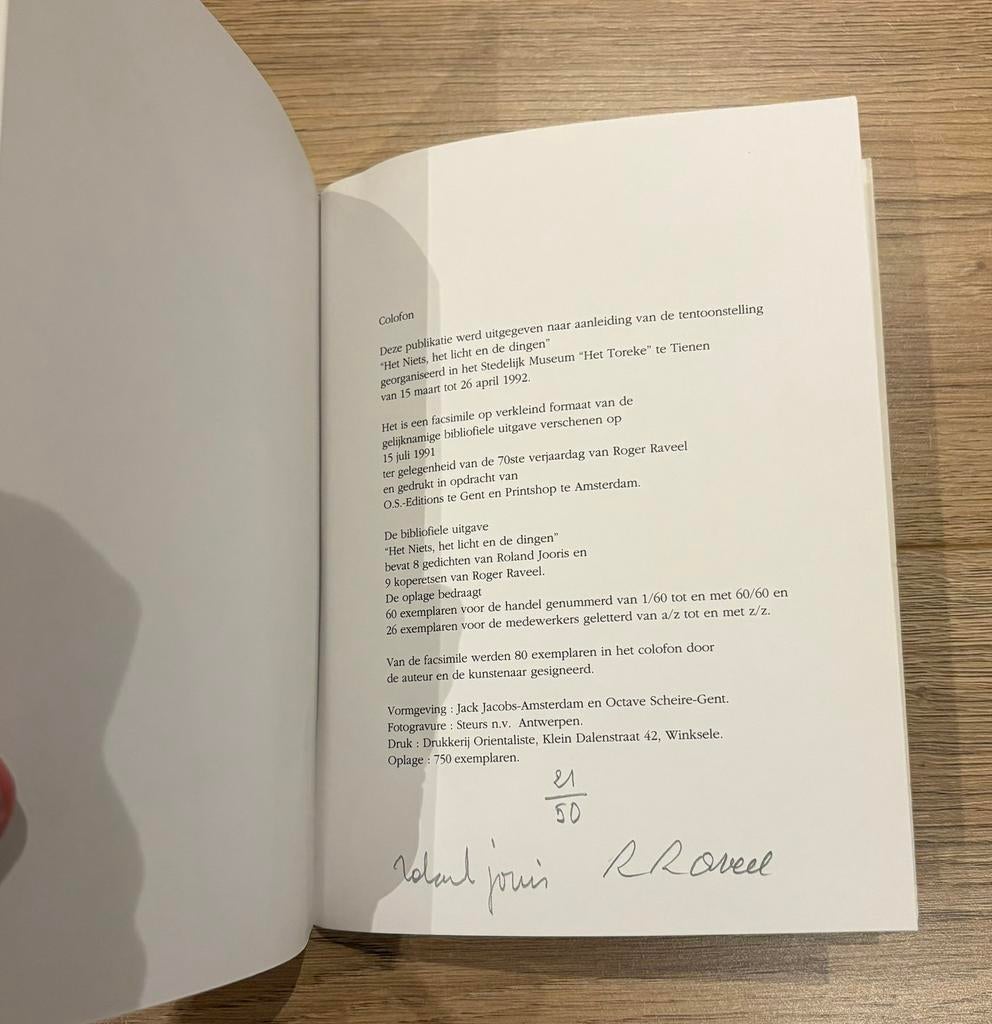 Colofon
Deze publikatie werd uitgegeven naar aanleiding van de tentoonstelling
"Het Niets, het licht en de dingen"
georganiseerd in het Stedelijk Museum "Het Toreke" te Tienen
van 15 maart tot 26 april 1992.
Het is een facsimile op verkleind formaat van de
gelijknamige bibliofiele uitgave verschenen op
15 juli 1991
ter gelegenheid van de 70ste verjaardag van Roger Raveel
en gedrukt in opdracht van
O.S.-Editions te Gent en Printshop te Amsterdam.
De bibliofiele uitgave
"Het Niets, het licht en de dingen"
bevat 8 gedichten van Roland Jooris en
9 koperetsen van Roger Raveel.
De oplage bedraagt
60 exemplaren voor de handel genummerd van 1/60 tot en met 60/60 en
26 exemplaren voor de medewerkers geletterd van a/z tot en met z/z.
Van de facsimile werden 80 exemplaren in het colofon door
de auteur en de kunstenaar gesigneerd.
Vormgeving : Jack Jacobs-Amsterdam en Octave Scheire-Gent.
Fotogravure : Steurs n.v. Antwerpen.
Druk : Drukkerij Orientaliste, Klein Dalenstraat 42, Winksele.
Oplage : 750 exemplaren.
21
50
roland jooris R Raveel